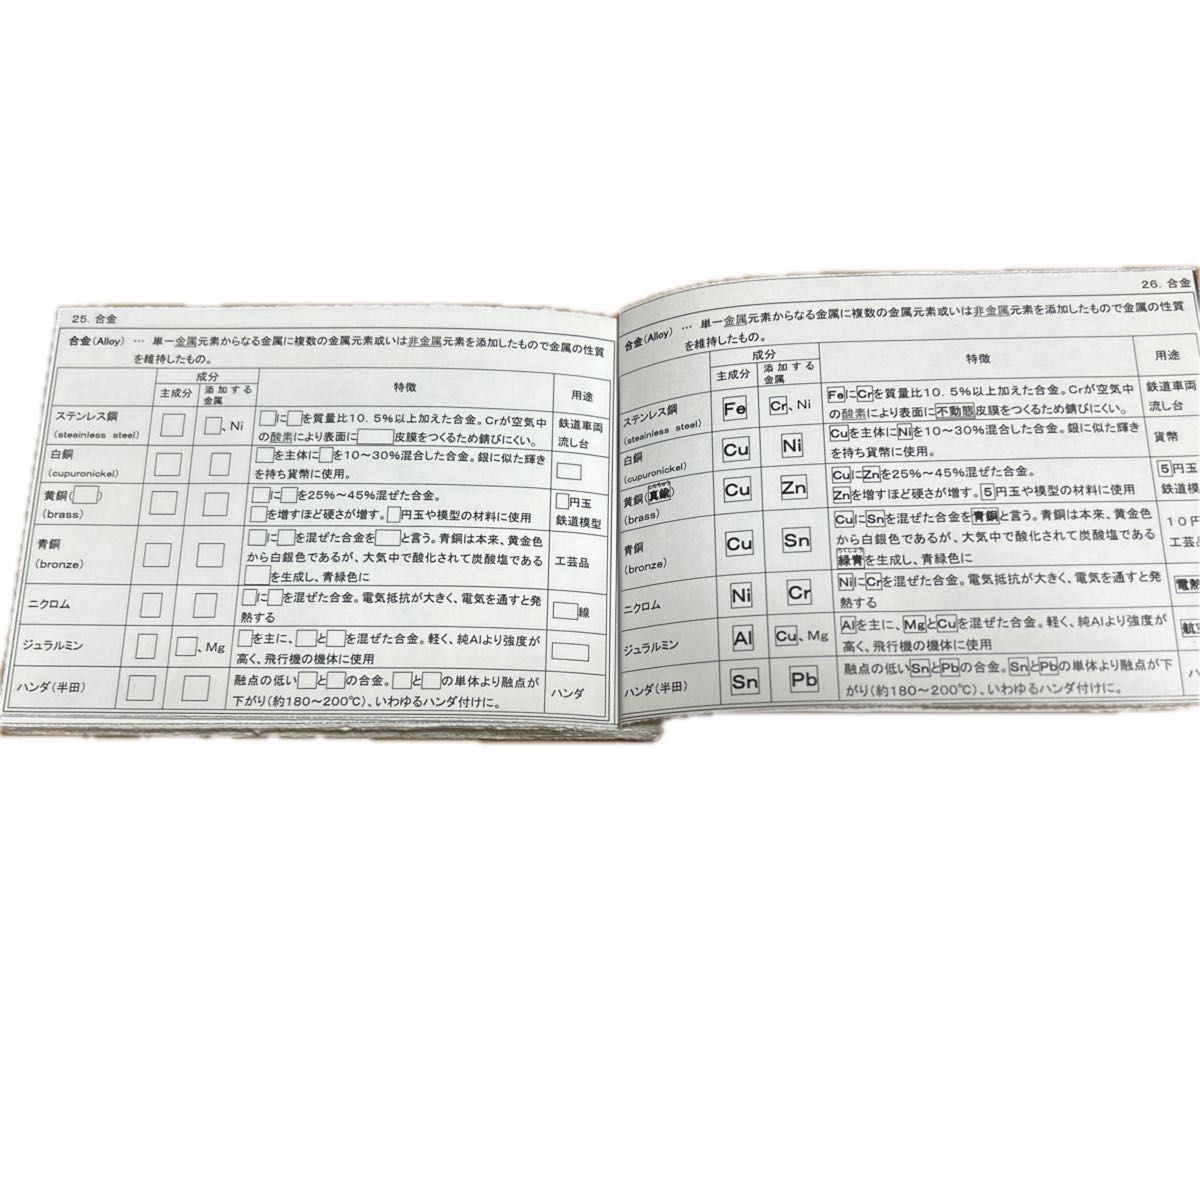 25. 合金
合金(Alloy) … 単一金属元素からなる金属に複数の金属元素或いは非金属元素を添加したもので金属の性質
を維持したもの。
成分
主成分
添加する
金属
特徴
用途
ステンレス鋼
(steainless steel)
、Ni
□に□を質量比10.5%以上加えた合金。Crが空気中
の酸素により表面に□皮膜をつくるため錆びにくい。
鉄道車両
流し台
白銅
(cupuronickel)
□を主体に□を10～30%混合した合金。銀に似た輝き
を持ち貨幣に使用。
黄銅(□)
(brass)
□に□を25%～45%混ぜた合金。
□を増すほど硬さが増す。□円玉や模型の材料に使用
□円玉
鉄道模型
青銅
(bronze)
□に□を混ぜた合金を□と言う。青銅は本来、黄金色
から白銀色であるが、大気中で酸化されて炭酸塩である
□を生成し、青緑色に
工芸品
ニクロム
□に□を混ぜた合金。電気抵抗が大きく、電気を通すと発
熱する
□線
ジュラルミン
□、Mg
□を主に、□と□を混ぜた合金。軽く、純Alより強度が
高く、飛行機の機体に使用
ハンダ(半田)
融点の低い□と□の合金。□と□の単体より融点が
下がり(約180～200℃)、いわゆるハンダ付けに。
ハンダ
26. 合金
合金(Alloy) … 単一金属元素からなる金属に複数の金属元素或いは非金属元素を添加したもので金属の性質
を維持したもの。
成分
主成分
添加する
金属
特徴
用途
ステンレス鋼
(steainless steel)
Fe
Cr、Ni
FeにCrを質量比10.5%以上加えた合金。Crが空気中
の酸素により表面に不動態皮膜をつくるため錆びにくい。
鉄道車両
流し台
白銅
(cupuronickel)
Cu
Ni
Cuを主体にNiを10～30%混合した合金。銀に似た輝き
を持ち貨幣に使用。
貨幣
黄銅(真鍮)
(brass)
Cu
Zn
CuにZnを25%～45%混ぜた合金。
Znを増すほど硬さが増す。5円玉や模型の材料に使用
5円玉
鉄道模
青銅
(bronze)
Cu
Sn
CuにSnを混ぜた合金を青銅と言う。青銅は本来、黄金色
から白銀色であるが、大気中で酸化されて炭酸塩である
りくしょう
緑青を生成し、青緑色に
10円
工芸品
ニクロム
Ni
Cr
NiにCrを混ぜた合金。電気抵抗が大きく、電気を通すと発
熱する
電熱
ジュラルミン
Al
Cu、Mg
Alを主に、MgとCuを混ぜた合金。軽く、純Alより強度が
高く、飛行機の機体に使用
ハンダ(半田)
Sn
Pb
融点の低いSnとPbの合金。SnとPbの単体より融点が下
がり(約180～200℃)、いわゆるハンダ付けに。